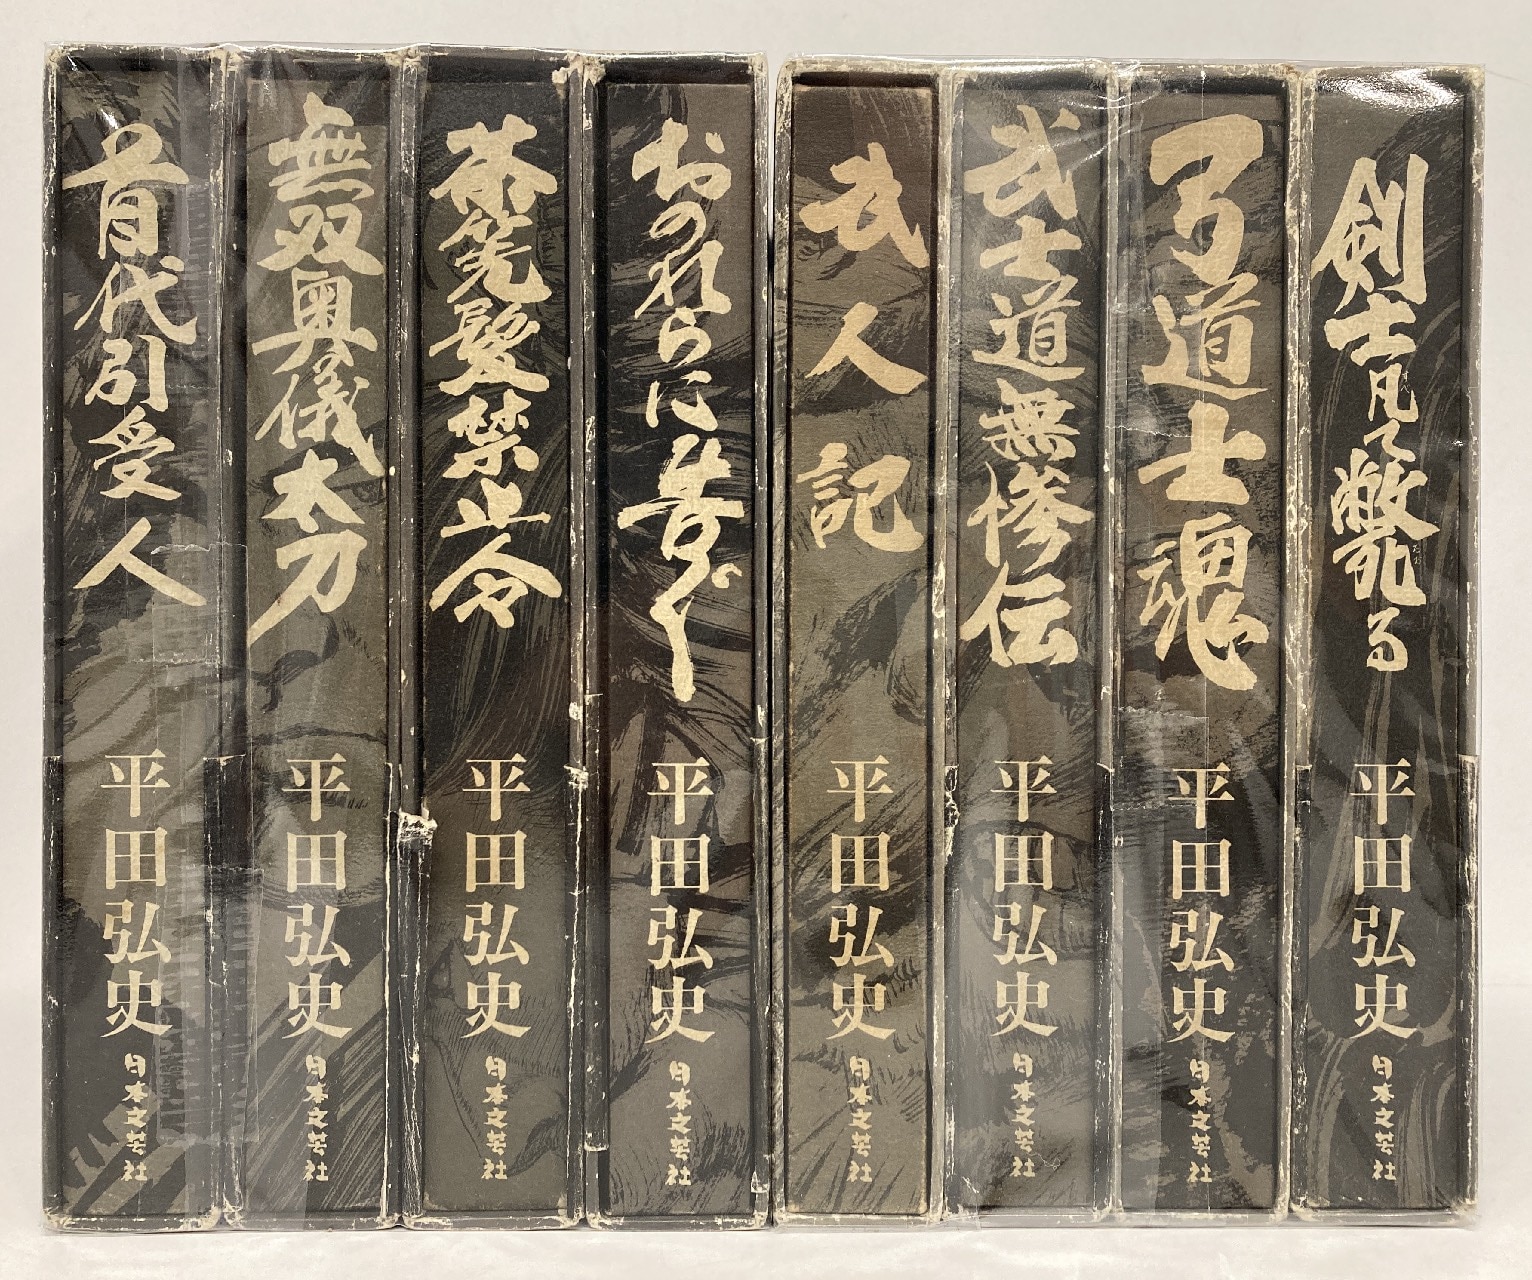 首代引受人
平田弘史
日本文芸社
無双奥儀太刀
平田弘史
日本文芸社
茶筅髪禁止令
平田弘史
日本文芸社
おのれらに告ぐ
平田弘史
日本文芸社
武人記
平田弘史
日本文芸社
武士道無惨伝
平田弘史
日本文芸社
弓道士魂
平田弘史
日本文芸社
剣士凡て斃る
平田弘史
日本文芸社